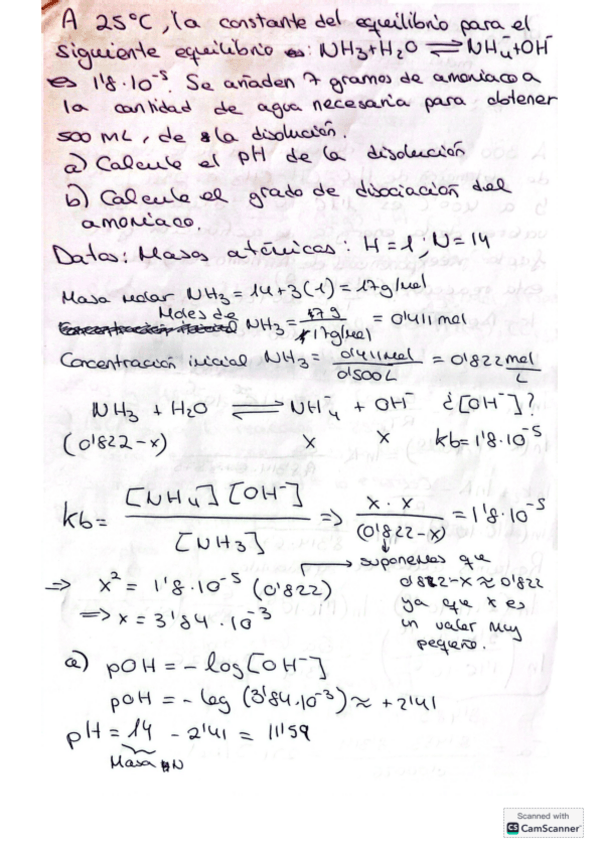 A 25°C, la constante del equilibrio para el
siguiente equilibrio es: NH3+H2O ⇌ NH4⁻+OH⁻
es 1'8·10⁻⁵. Se añaden 7 gramos de amoniaco a
la cantidad de agua necesaria para obtener
500 mL, de la disolución.
a) Calcule el pH de la disolución
b) Calcule el grado de disociación del
amoniaco.
Datos: Masas atómicas: H = 1 ; N = 14
Masa molar NH3 = 14+3(1) = 17g/mol
Moles de
Concentración inicial NH3 = 7 g / 17g/mol = 0'411 mol
Concentración inicial NH3 = 0'411 mol / 0'500 L = 0'822 mol/L
NH3 + H2O ⇌ NH4⁻ + OH ¿[OH⁻]?
(0'822-x) x x kb = 1'8·10⁻⁵
kb = [NH4][OH⁻] / [NH3] ⇒ x · x / (0'822-x) = 1'8·10⁻⁵
suponemos que
0'822-x ≈ 0'822
ya que x es
un valor muy
pequeño.
⇒ x² = 1'8·10⁻⁵ (0'822)
⇒ x = 3'84·10⁻³
a) pOH = - log [OH⁻]
pOH = - log (3'84·10⁻³) ≈ +2'41
pH = 14 - 2'41 = 11'59
Masa N
Scanned with
CS CamScanner